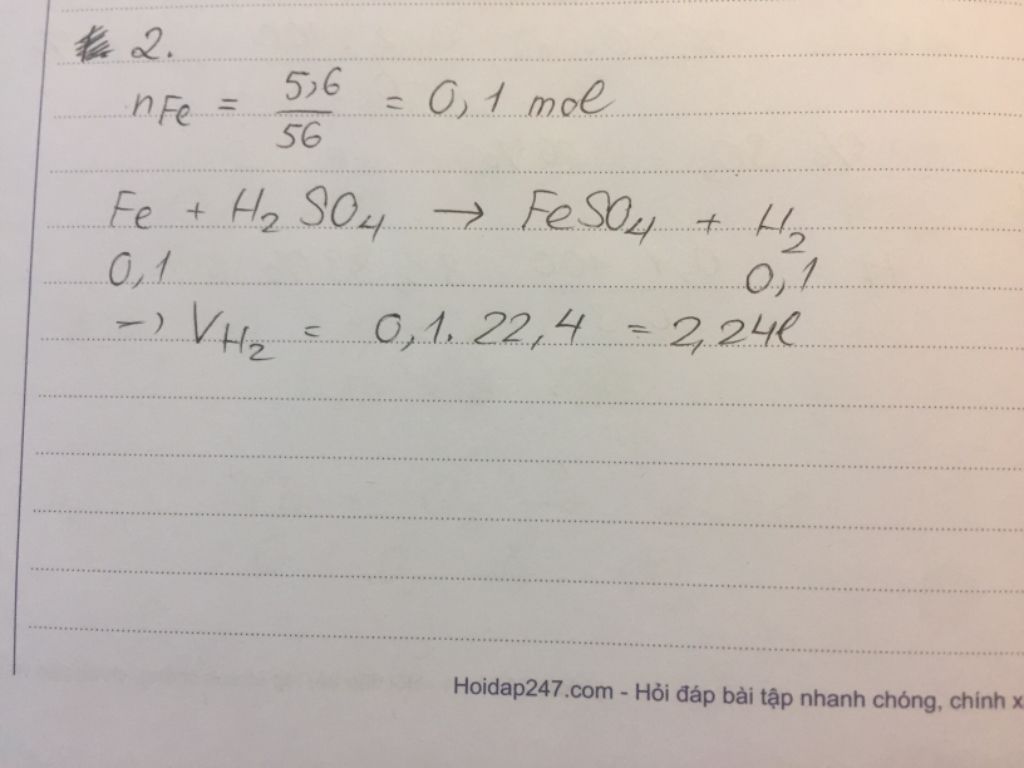 2.
nFe = 5,6/56 = 0,1 mol
Fe + H2SO4 → FeSO4 + H2
0,1 0,1
→ VH2 = 0,1. 22,4 = 2,24l
Hoidap247.com - Hỏi đáp bài tập nhanh chóng, chính x